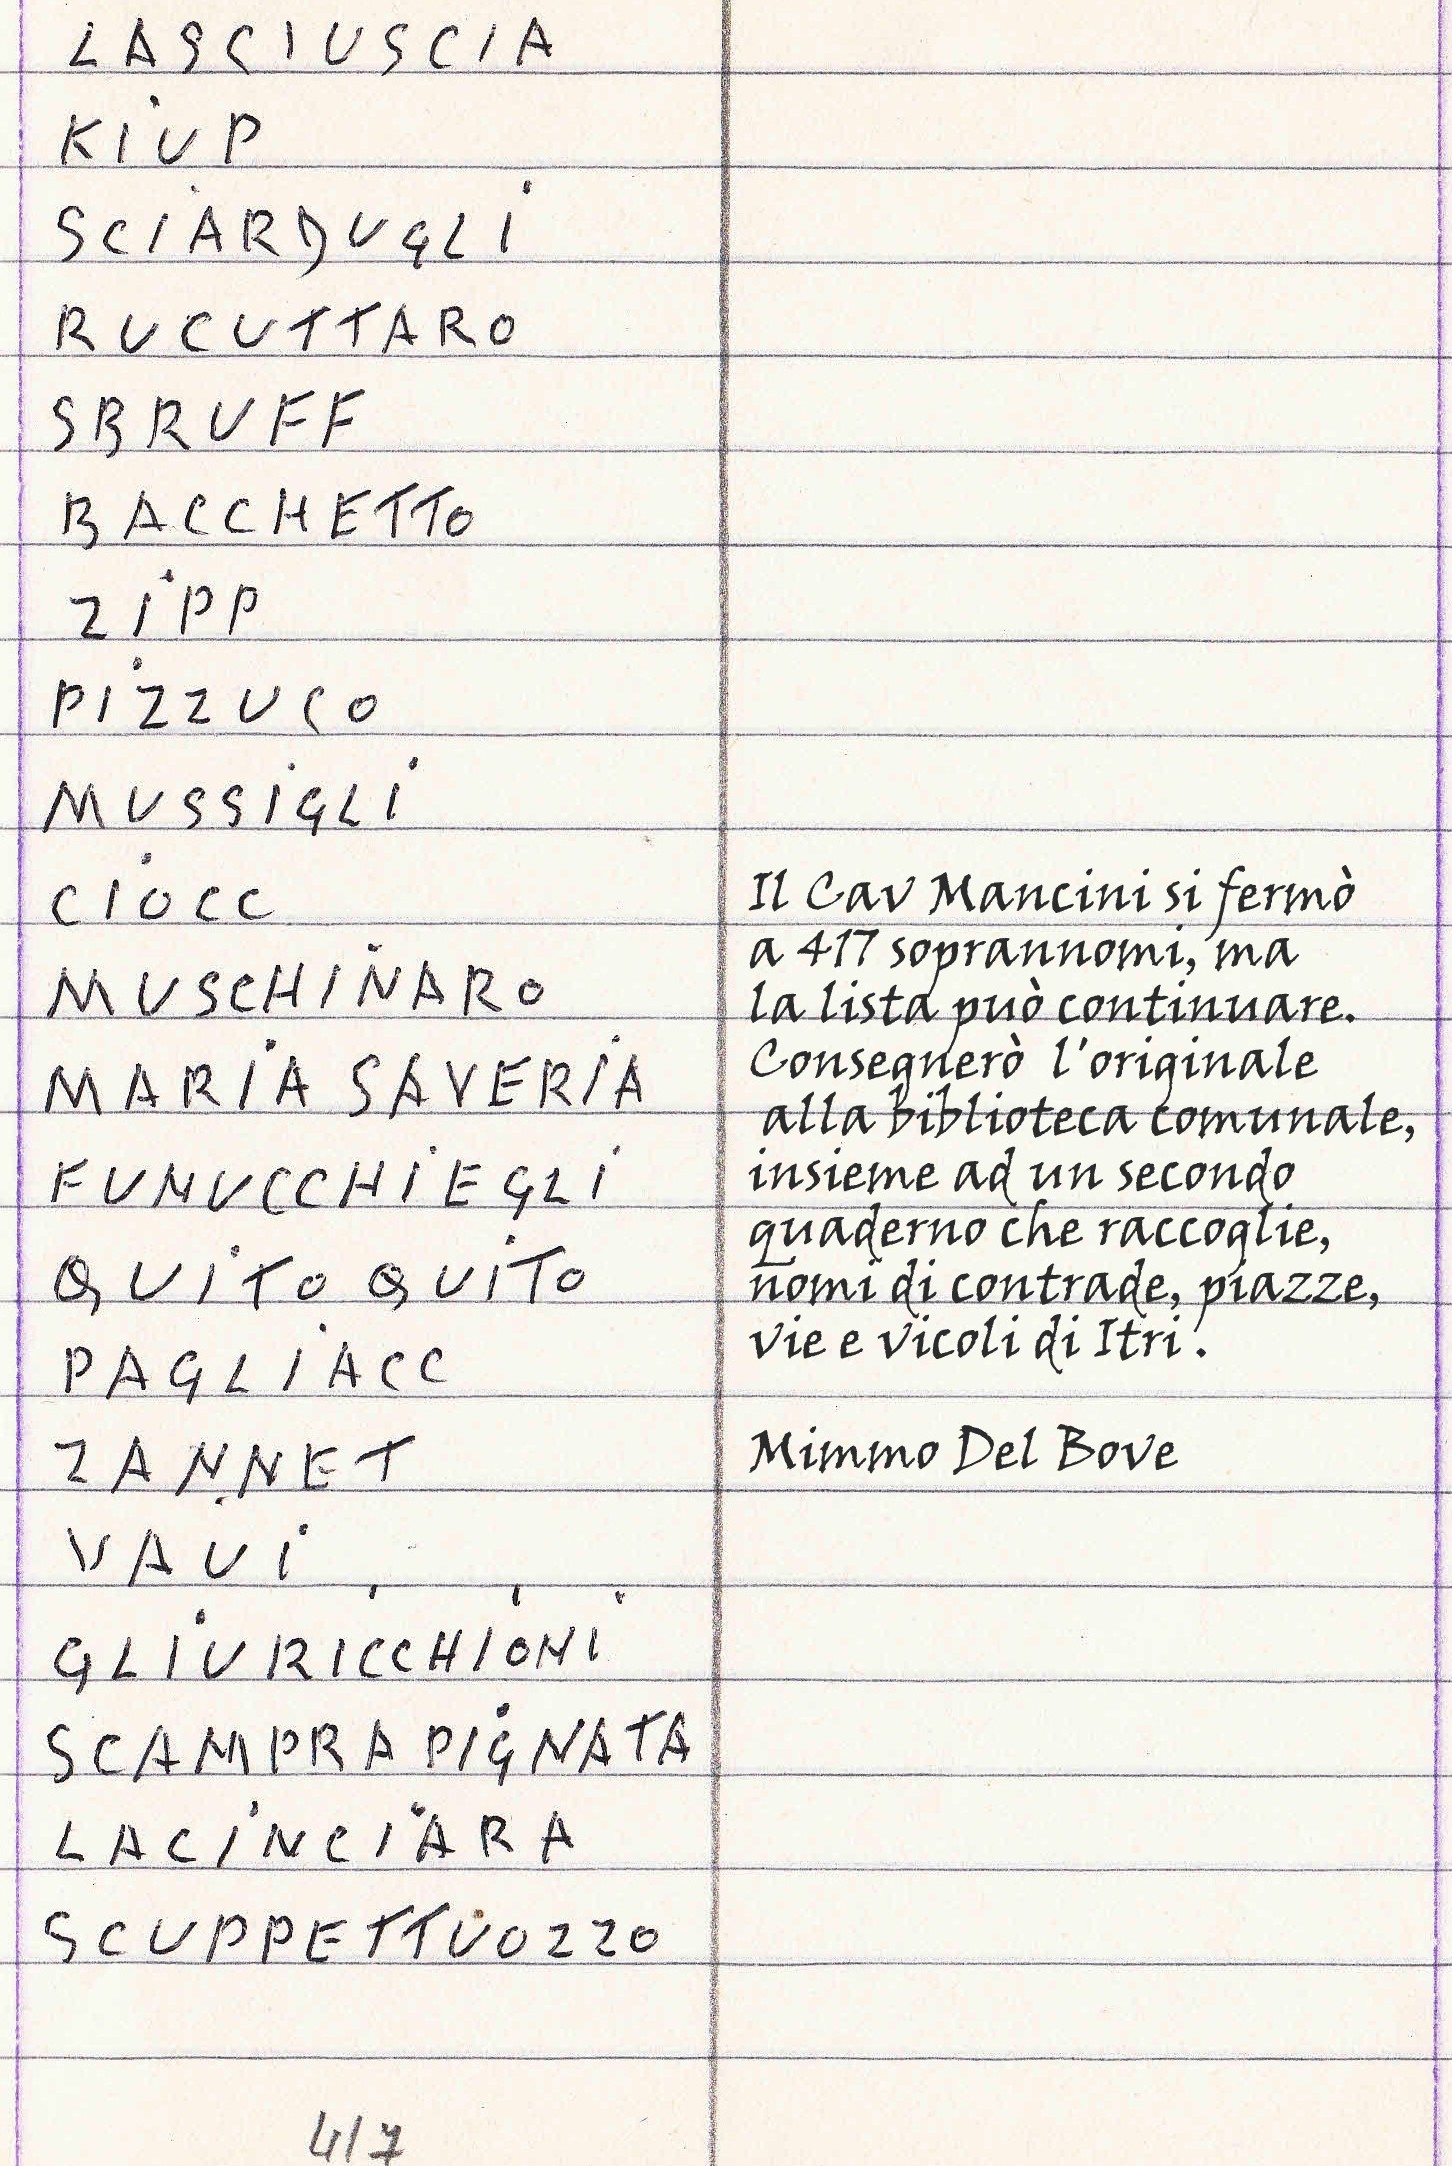 LASCIUSCIA
KIUP
SCIARDUGLI
RUCUTTARO
SBRUFF
BACCHETTO
ZIPP
PIZZUCO
MUSSIGLI
CIOCC
MUSCHINARO
MARIA SAVERIA
FUNUCCHIEGLI
QUITO QUITO
PAGLIACC
ZANNET
VAUI
GLIURICCHIONI
SCAMPRA PIGNATA
LACINCIARA
SCUPPETTUOZZO
417
Il Cav Mancini si fermò
a 417 soprannomi, ma
la lista può continuare.
Consegnerò l'originale
alla biblioteca comunale,
insieme ad un secondo
quaderno che raccoglie,
nomi di contrade, piazze,
vie e vicoli di Itri .
Mimmo Del Bove